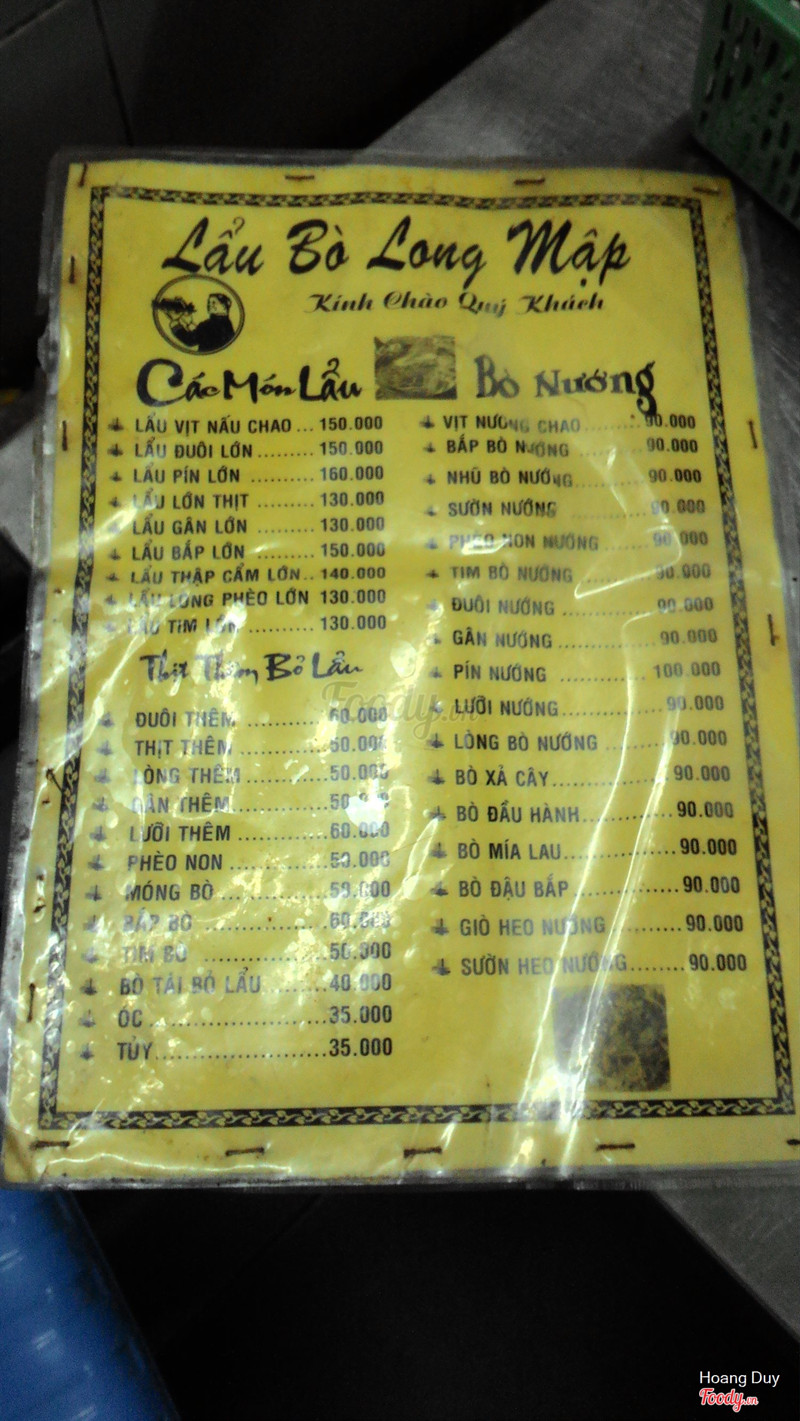 Lẩu Bò Long Mập
Kính Chào Quý Khách
Các Món Lẩu
LẨU VỊT NẤU CHAO... 150.000
LẨU ĐUÔI LỚN......... 150.000
LẨU PÍN LỚN .......... 160.000
LẨU LỚN THỊT .......... 130.000
LẨU GÂN LỚN .......... 130.000
LẨU BẮP LỚN ......... 150.000
LẨU THẬP CẨM LỚN.. 140.000
LẨU LÒNG PHÈO LỚN 130.000
LẨU TIM LỚN .......... 130.000
Thịt Thêm Bỏ Lẩu
ĐUÔI THÊM ............ 60.000
THỊT THÊM ............50.000
LÒNG THÊM ............50.000
GÂN THÊM..............50.000
LƯỠI THÊM .............60.000
PHÈO NON ..............50.000
MÓNG BÒ................50.000
BẮP BÒ ..................60.000
TIM BÒ ..................50.000
BÒ TÁI BỎ LẨU ........40.000
ÓC..........................35.000
TỦY.........................35.000
Bò Nướng
VỊT NƯỚNG CHAO.........90.000
BẮP BÒ NƯỚNG ..........90.000
NHŨ BÒ NƯỚNG .........90.000
SƯỜN NƯỚNG ............90.000
PHÈO NON NƯỚNG ......90.000
TIM BÒ NƯỚNG ..........90.000
ĐUÔI NƯỚNG ............90.000
GÂN NƯỚNG .............90.000
PÍN NƯỚNG ............ 100.000
LƯỠI NƯỚNG.............90.000
LÒNG BÒ NƯỚNG .......90.000
BÒ XẢ CÂY................90.000
BÒ ĐẦU HÀNH............90.000
BÒ MÍA LAU...............90.000
BÒ ĐẬU BẮP..............90.000
GIÒ HEO NƯỚNG .........90.000
SƯỜN HEO NƯỚNG........90.000
Foody.vn
Hoang Duy
Foody.vn